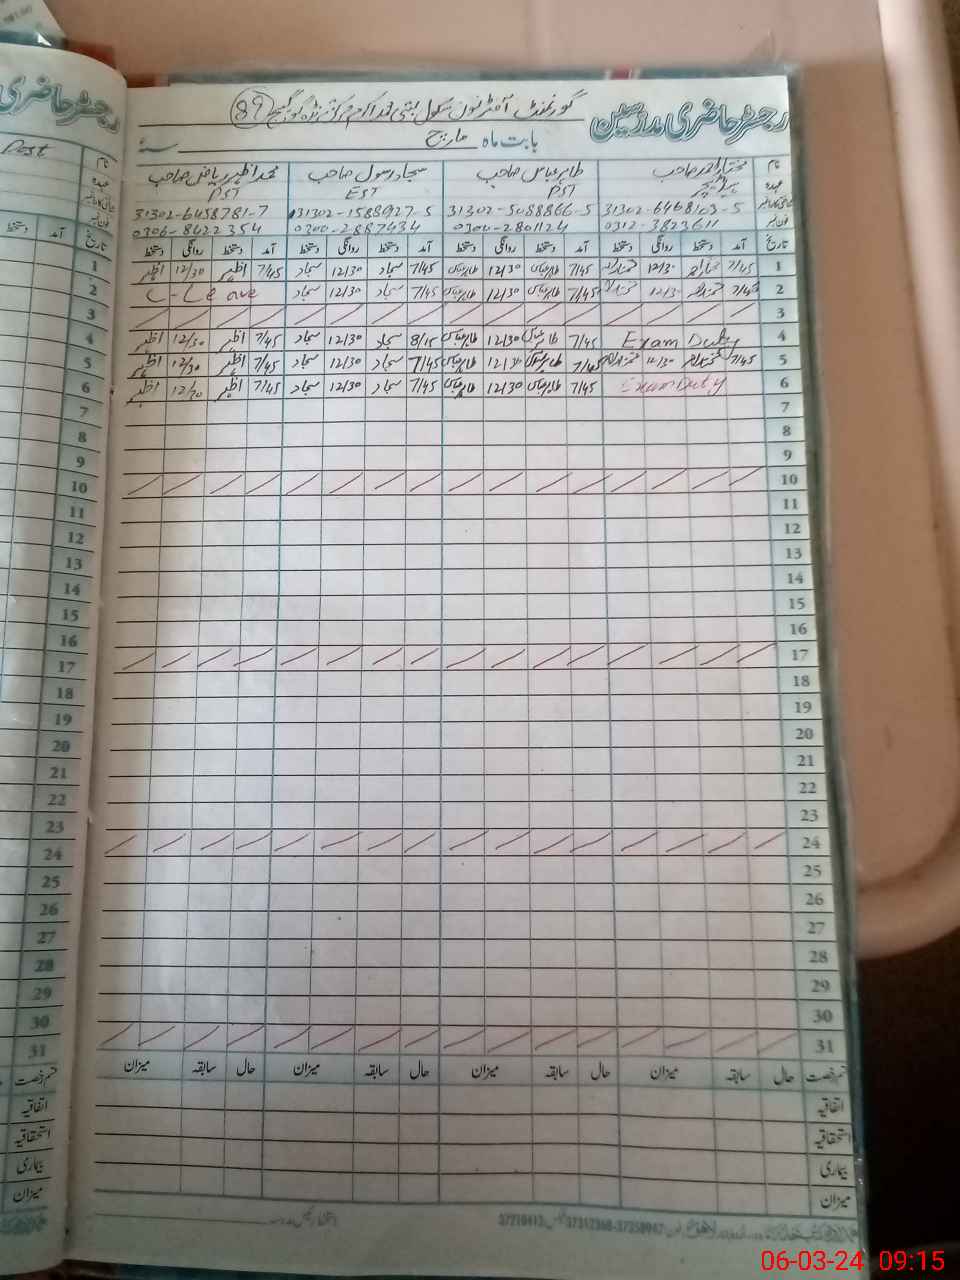 رجسٹر حاضری مدرسین
گورنمنٹ آفٹرنون سکول بستی محمد اکرم مرکز 89
بابت ماہ مارچ سنہ
نام مختار احمد صاحب طاہر عباس صاحب سجاد رسول صاحب محمد اظہر ریاض صاحب
عہدہ ہیڈ ٹیچر PST EST PST
31302-5088866-5 31302-1588927-5 31302-6458781-7
فون نمبر 0312-3823611 0300-2801124 0300-2887434 0306-8622354
تاریخ آمد دستخط روانگی دستخط آمد دستخط روانگی دستخط آمد دستخط روانگی دستخط آمد دستخط روانگی دستخط
1 7/45 12/30 7/45 طاہر عباس 12/30 طاہر عباس 7/45 سجاد 12/30 سجاد 7/45 اظہر 12/30 اظہر
2 7/45 12/30 7/45 طاہر عباس 12/30 طاہر عباس 7/45 سجاد 12/30 سجاد C-Leave
3
4 Exam Duty 7/45 طاہر عباس 12/30 طاہر عباس 8/15 سجاد 12/30 سجاد 7/45 اظہر 12/30 اظہر
5 7/45 12/30 7/45 طاہر عباس 12/30 طاہر عباس 7/45 سجاد 12/30 سجاد 7/45 اظہر 12/30 اظہر
6 Exam Duty 7/45 طاہر عباس 12/30 طاہر عباس 7/45 سجاد 12/30 سجاد 7/45 اظہر 12/30 اظہر
7
8
9
10
11
12
13
14
15
16
17
18
19
20
21
22
23
24
25
26
27
28
29
30
31
قسم رخصت حال سابقہ میزان حال سابقہ میزان حال سابقہ میزان حال سابقہ میزان
اتفاقیہ
استحقاقیہ
بیماری
میزان
رجسٹر حاضری
Post
نام
عہدہ
فون نمبر
تاریخ آمد دستخط
1
2
3
4
5
6
7
8
9
10
11
12
13
14
15
16
17
18
19
20
21
22
23
24
25
26
27
28
29
30
31
قسم رخصت
اتفاقیہ
استحقاقیہ
بیماری
میزان
06-03-24 09:15